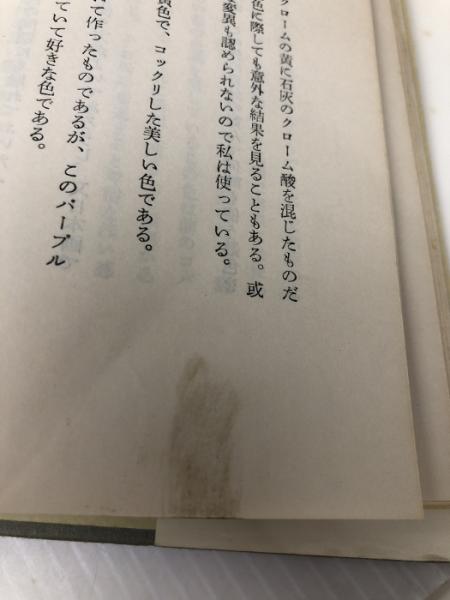 クロームの黄に石灰のクローム酸を混じたものだ
色に際しても意外な結果を見ることもある。或
変異も認められないので私は使っている。
黄色で、コックリした美しい色である。
て作ったものであるが、このパープル
ていて好きな色である。